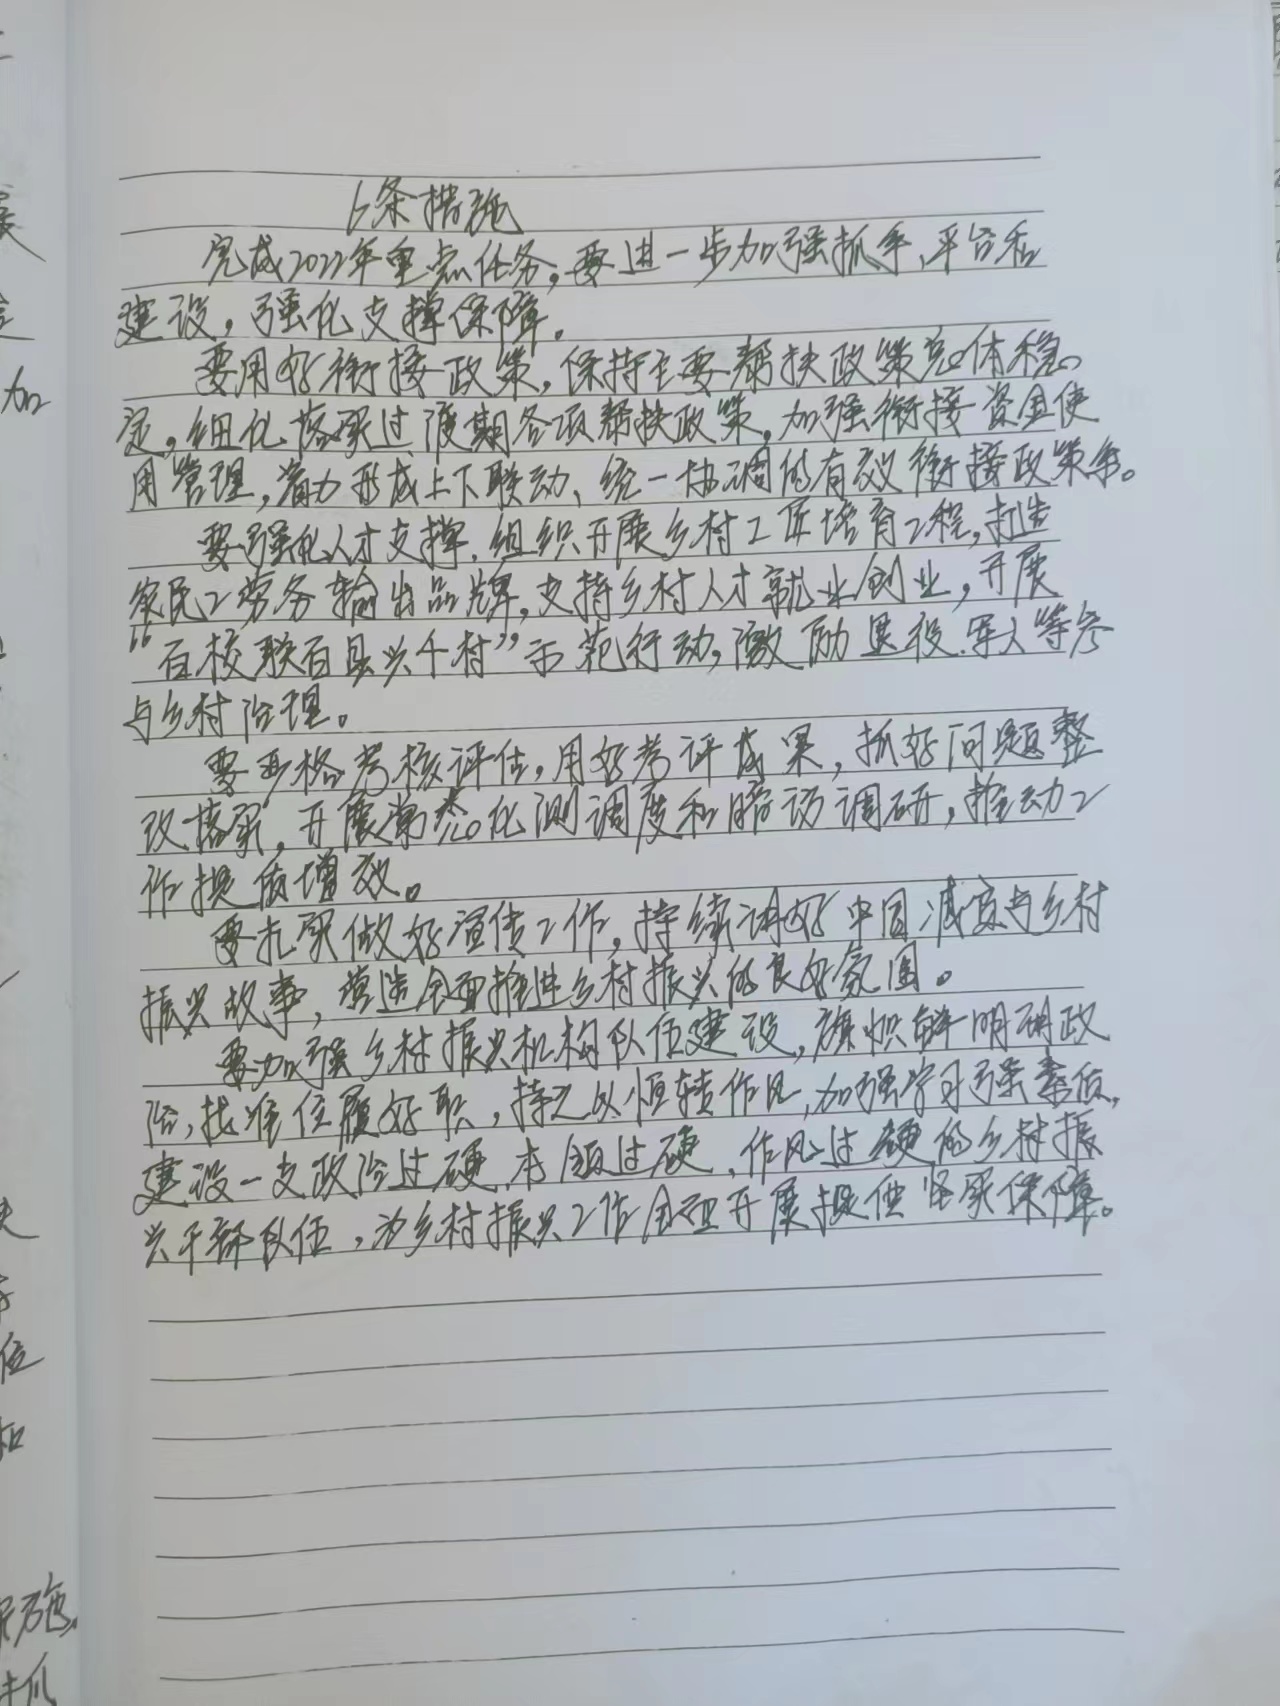 6条措施
完成2022年重点任务，要进一步加强抓手、平台和
建设，强化支撑保障。
要用好衔接政策，保持主要帮扶政策总体稳
定。细化落实过渡期各项帮扶政策。加强衔接资金使
用管理，着力形成上下联动、统一协调的有效衔接政策体系。
要强化人才支撑，组织开展乡村工匠培育工程，打造
农民工劳务输出品牌，支持乡村人才就业创业，开展
“百校联百县兴千村”示范行动，激励退役军人等参
与乡村治理。
要严格考核评估，用好考评成果，抓好问题整
改落实，开展常态化测调度和暗访调研，推动工
作提质增效。
要扎实做好宣传工作，持续讲好中国减贫与乡村
振兴故事，营造全面推进乡村振兴的良好氛围。
要加强乡村振兴机构队伍建设，旗帜鲜明讲政
治，找准位履好职，持之以恒转作风，加强学习强素质，
建设一支政治过硬、本领过硬、作风过硬的乡村振
兴干部队伍，为乡村振兴工作全面开展提供坚实保障。